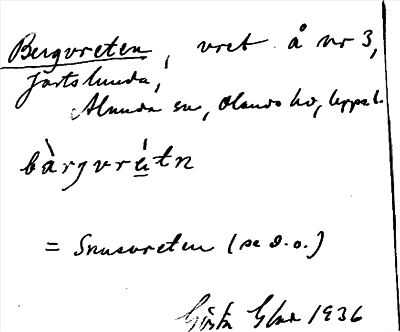 Bergvreten, vret å nr 3,
Jartslunda,
Alunda sn, Olands hd, Uppsl.
bàrgvrétn
= Snusvreten (se d.o.)
Gösta 1936